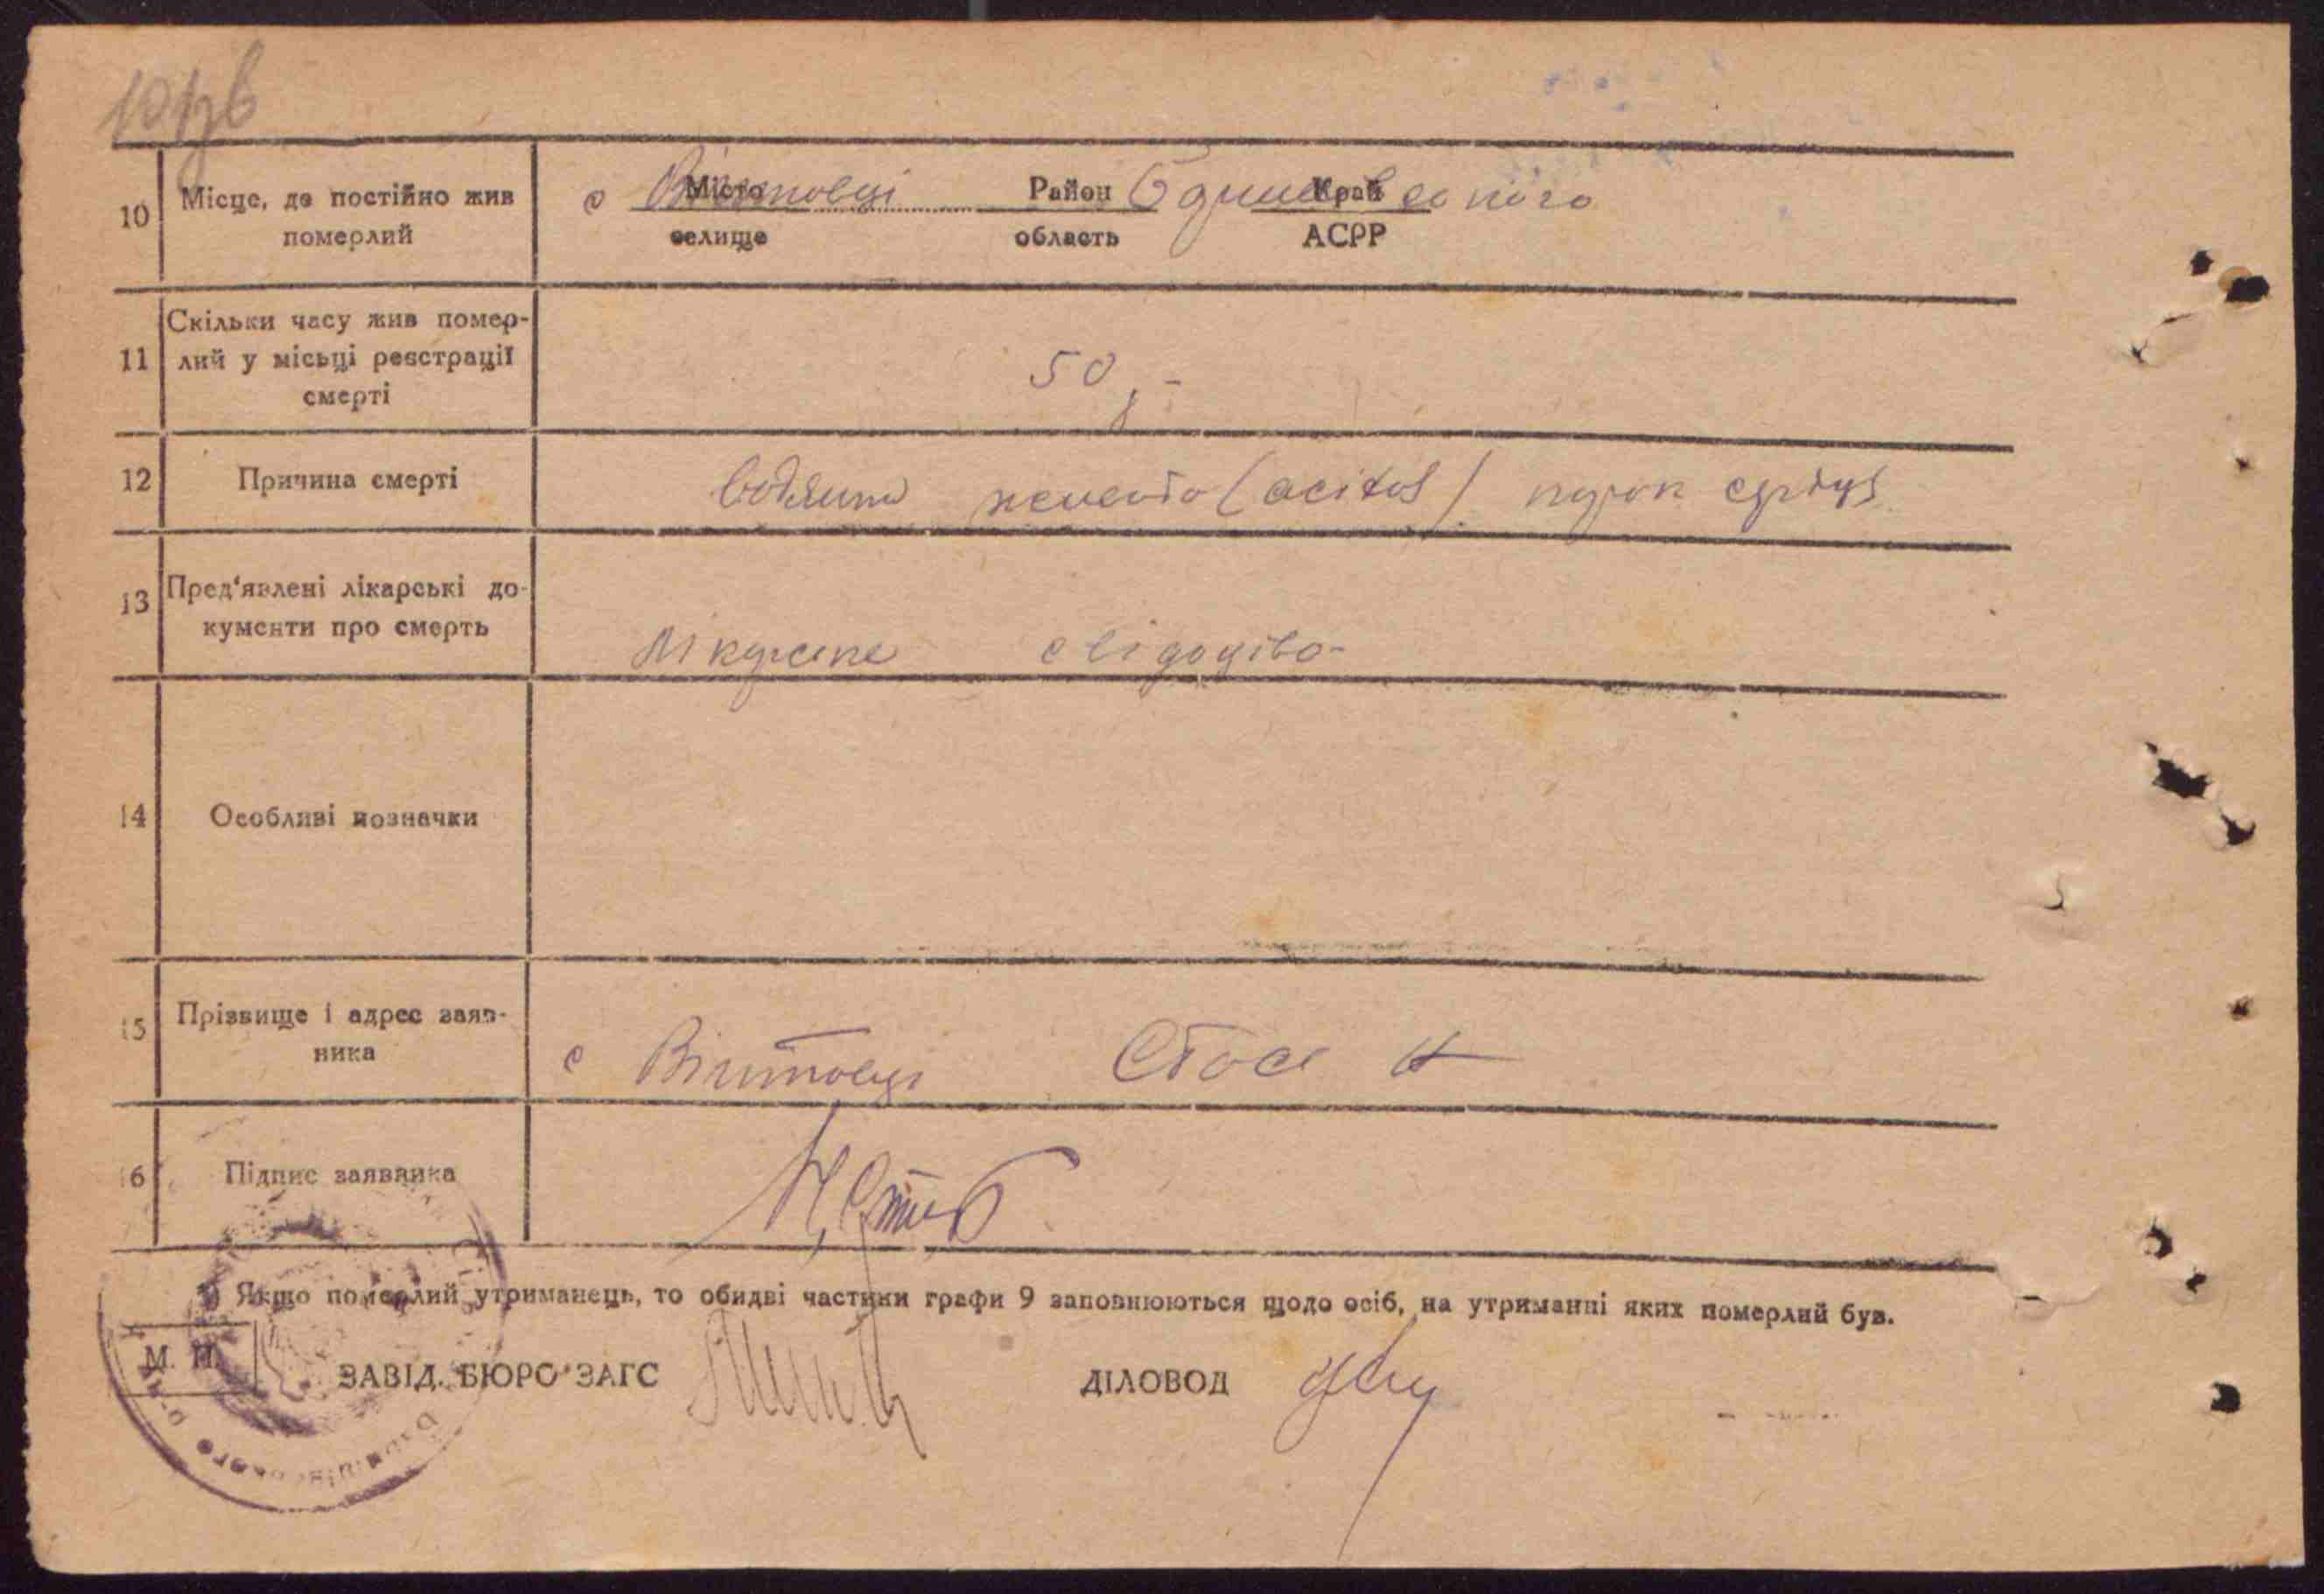 10 Місце, де постійно жив померлий
с Війтовці
Місто Район Край
селище область АСРР
11 Скільки часу жив помер-
лий у місьці реєстрації
смерті
50
12 Причина смерті
водянка печінки (acites) порок серця
13 Пред'явлені лікарські до-
кументи про смерть
Лікарське свідоцтво
14 Особливі позначки
15 Прізвище і адрес заяв-
ника
с Війтовці Стось
16 Підпис заявника
*) Якщо померлий утриманець, то обидві частини графи 9 заповнюються щодо осіб, на утриманні яких померлий був.
М. П.
ЗАВІД. БЮРО ЗАГС ДІЛОВОД